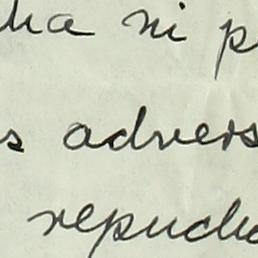 ha ni p
s advers
repucha